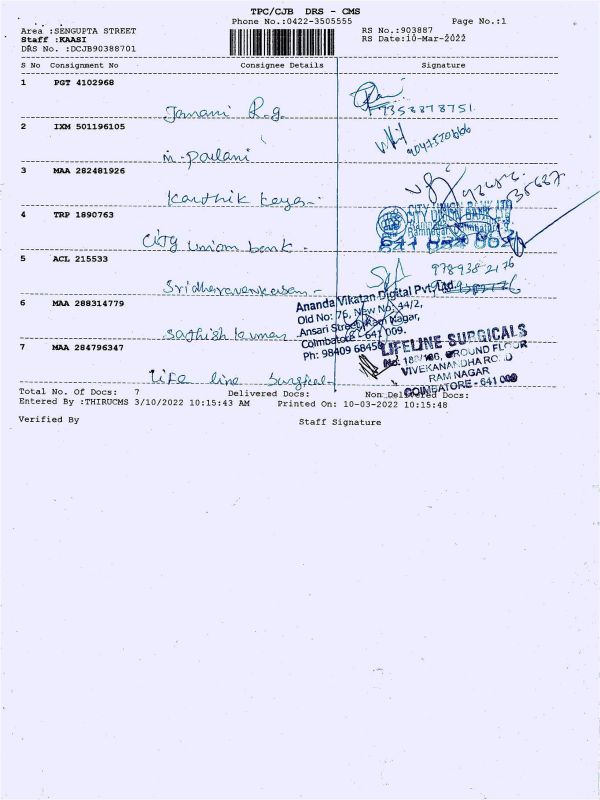 TPC/CJB DRS - CMS
Phone No.:0422-3505555 Page No.:1
Area :SENGUPTA STREET RS No.:903887
Staff :KAASI RS Date:10-Mar-2022
DRS No. :DCJB90388701
S No Consignment No Consignee Details Signature
1 PGT 4102968
Jamani R.g.
9353878751
2 IXM 501196105
M. Pavlani
3 MAA 282481926
Karthik
4 TRP 1890763
CITY UNION BANK LTD
City Union bank.
5 ACL 215533
978938 2176
6 MAA 288314779
Sathish kumar
Ananda Vikatan Digital Pvt. Ltd.
Old No: 76, New No: 44/2,
Ansari Street, Ram Nagar,
Coimbatore - 641 009.
Ph: 98409 6845
7 MAA 284796347
Life line Surgical
LIFELINE SURGICALS
GROUND FLOOR
VIVEKANANDHA ROAD
RAM NAGAR
COIMBATORE - 641 009
Total No. Of Docs: 7 Delivered Docs: Non Delivered Docs:
Entered By :THIRUCMS 3/10/2022 10:15:43 AM Printed On: 10-03-2022 10:15:48
Verified By Staff Signature